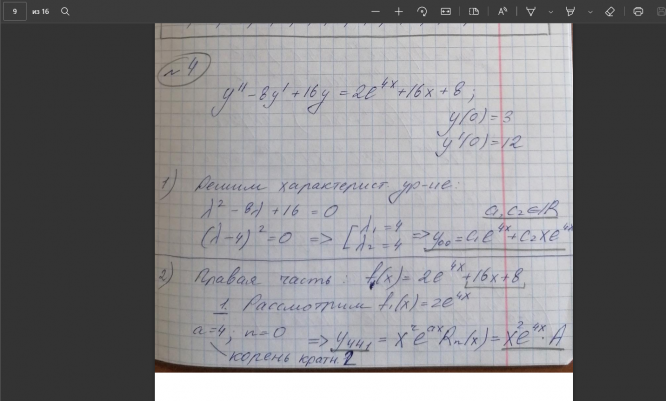 9 из 16
№4
y'' - 8y' + 16y = 2e^{4x} + 16x + 8;
y(0) = 3
y'(0) = 12
1) Решим характерист. ур-ие:
λ² - 8λ + 16 = 0
C₁, C₂ ∈ ℝ
(λ - 4)² = 0 => [λ₁ = 4 λ₂ = 4 => y₀₀ = C₁e^{4x} + C₂xe^{4x}
2) Правая часть: f(x) = 2e^{4x} + 16x + 8
1. Рассмотрим f₁(x) = 2e^{4x}
a = 4; n = 0 => yчн1 = x²e^{ax}Rₙ(x) = x²e^{4x}·A
корень кратн. 2